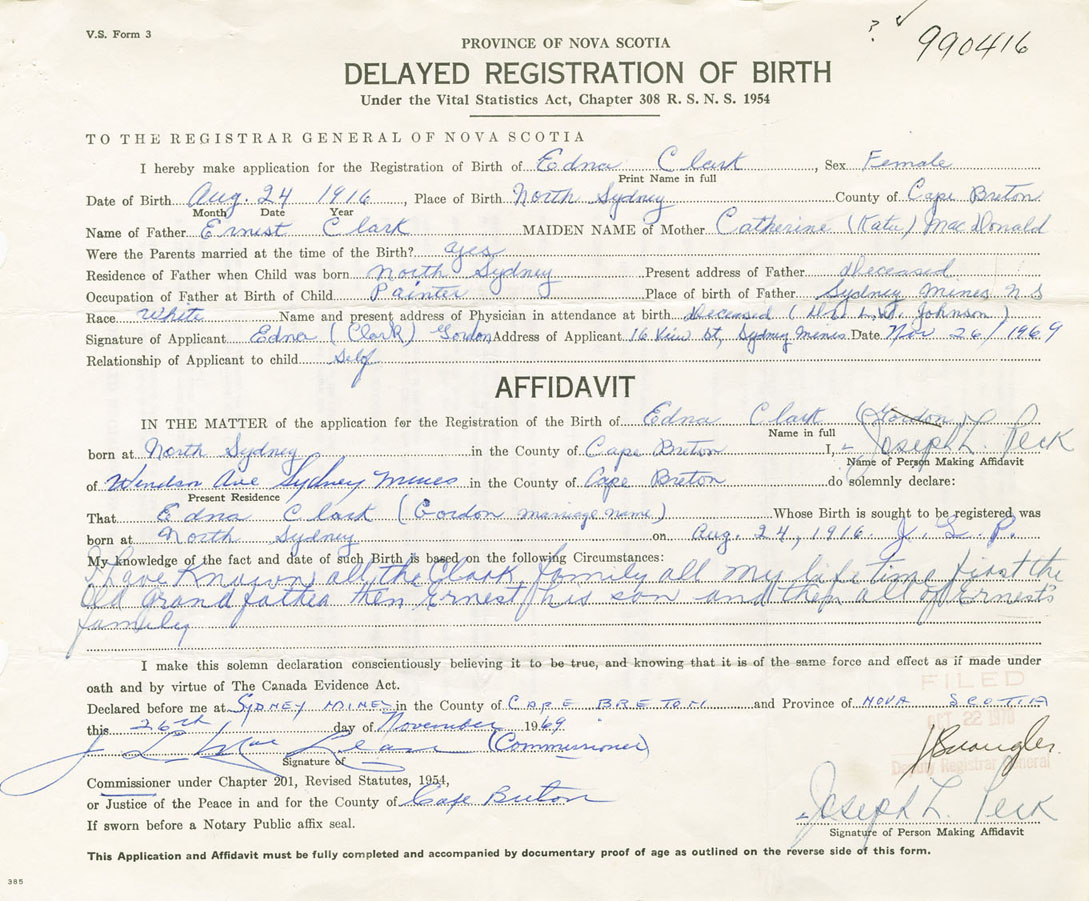 V.S. Form 3
? ✓ 990416
PROVINCE OF NOVA SCOTIA
DELAYED REGISTRATION OF BIRTH
Under the Vital Statistics Act, Chapter 308 R. S. N. S. 1954
TO THE REGISTRAR GENERAL OF NOVA SCOTIA
I hereby make application for the Registration of Birth of Edna Clark, Sex Female
Print Name in full
Date of Birth Aug. 24 1916, Place of Birth North Sydney County of Cape Breton
Month Date Year
Name of Father Ernest Clark MAIDEN NAME of Mother Catherine (Katie) MacDonald
Were the Parents married at the time of the Birth? yes
Residence of Father when Child was born North Sydney Present address of Father deceased
Occupation of Father at Birth of Child Painter Place of birth of Father Sydney Mines N S
Race White Name and present address of Physician in attendance at birth deceased (Dr. L.W. Johnson)
Signature of Applicant Edna (Clark) Gordon Address of Applicant 16 View St, Sydney Mines Date Nov 26/1969
Relationship of Applicant to child Self
AFFIDAVIT
IN THE MATTER of the application for the Registration of the Birth of Edna Clark (Gordon)
Name in full
born at North Sydney in the County of Cape Breton I, Joseph L. Peck
Name of Person Making Affidavit
of Windsor Ave Sydney Mines in the County of Cape Breton do solemnly declare:
Present Residence
That Edna Clark (Gordon marriage name) Whose Birth is sought to be registered was
born at North Sydney on Aug. 24, 1916. J. L. P.
My knowledge of the fact and date of such Birth is based on the following Circumstances:
I have Known all the Clark family all my life time first the
Old Grandfather then Ernest his son and then all of Ernest's
family
I make this solemn declaration conscientiously believing it to be true, and knowing that it is of the same force and effect as if made under
oath and by virtue of The Canada Evidence Act.
FILED
Declared before me at SYDNEY MINES in the County of CAPE BRETON and Province of NOVA SCOTIA
OCT 22 1970
this 26th day of November 1969
J L MacLean (Commissioner)
Signature of
Deputy Registrar General
Commissioner under Chapter 201, Revised Statutes, 1954,
or Justice of the Peace in and for the County of Cape Breton
Joseph L. Peck
If sworn before a Notary Public affix seal.
Signature of Person Making Affidavit
This Application and Affidavit must be fully completed and accompanied by documentary proof of age as outlined on the reverse side of this form.
385